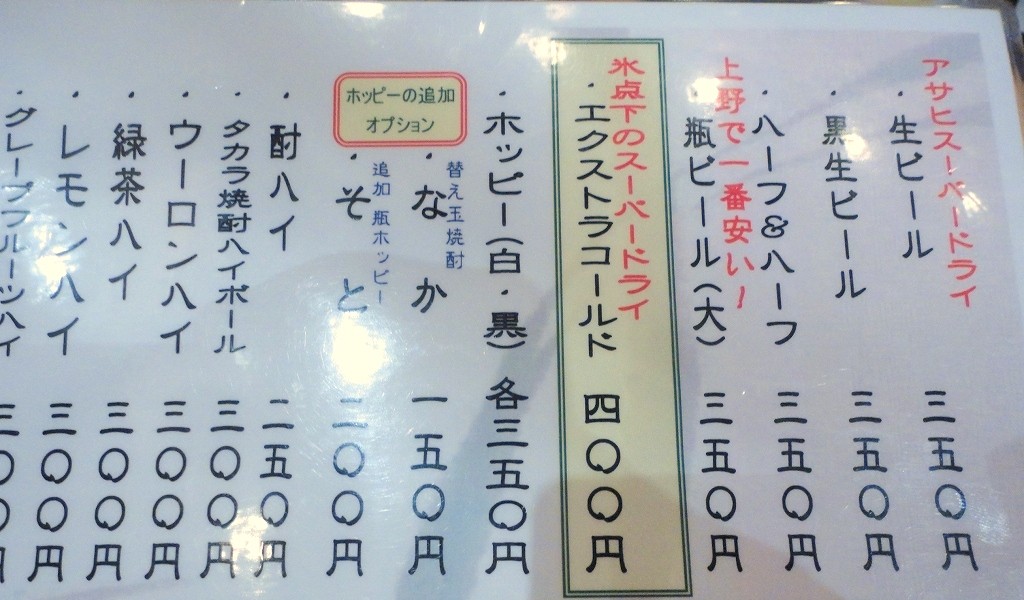 アサヒスーパードライ
・生ビール 三五〇円
・黒生ビール 三五〇円
・ハーフ&ハーフ 三五〇円
上野で一番安い！
・瓶ビール（大） 三五〇円
氷点下のスーパードライ
・エクストラコールド 四〇〇円
・ホッピー（白・黒） 各三五〇円
ホッピーの追加
オプション
替え玉焼酎
・なか 一五〇円
追加 瓶ホッピー
・そと 二〇〇円
・酎ハイ 二五〇円
・タカラ焼酎ハイボール 三〇〇円
・ウーロンハイ 三〇〇円
・緑茶ハイ 三〇〇円
・レモンハイ 三〇〇円
・グレープフルーツハイ 三〇〇円